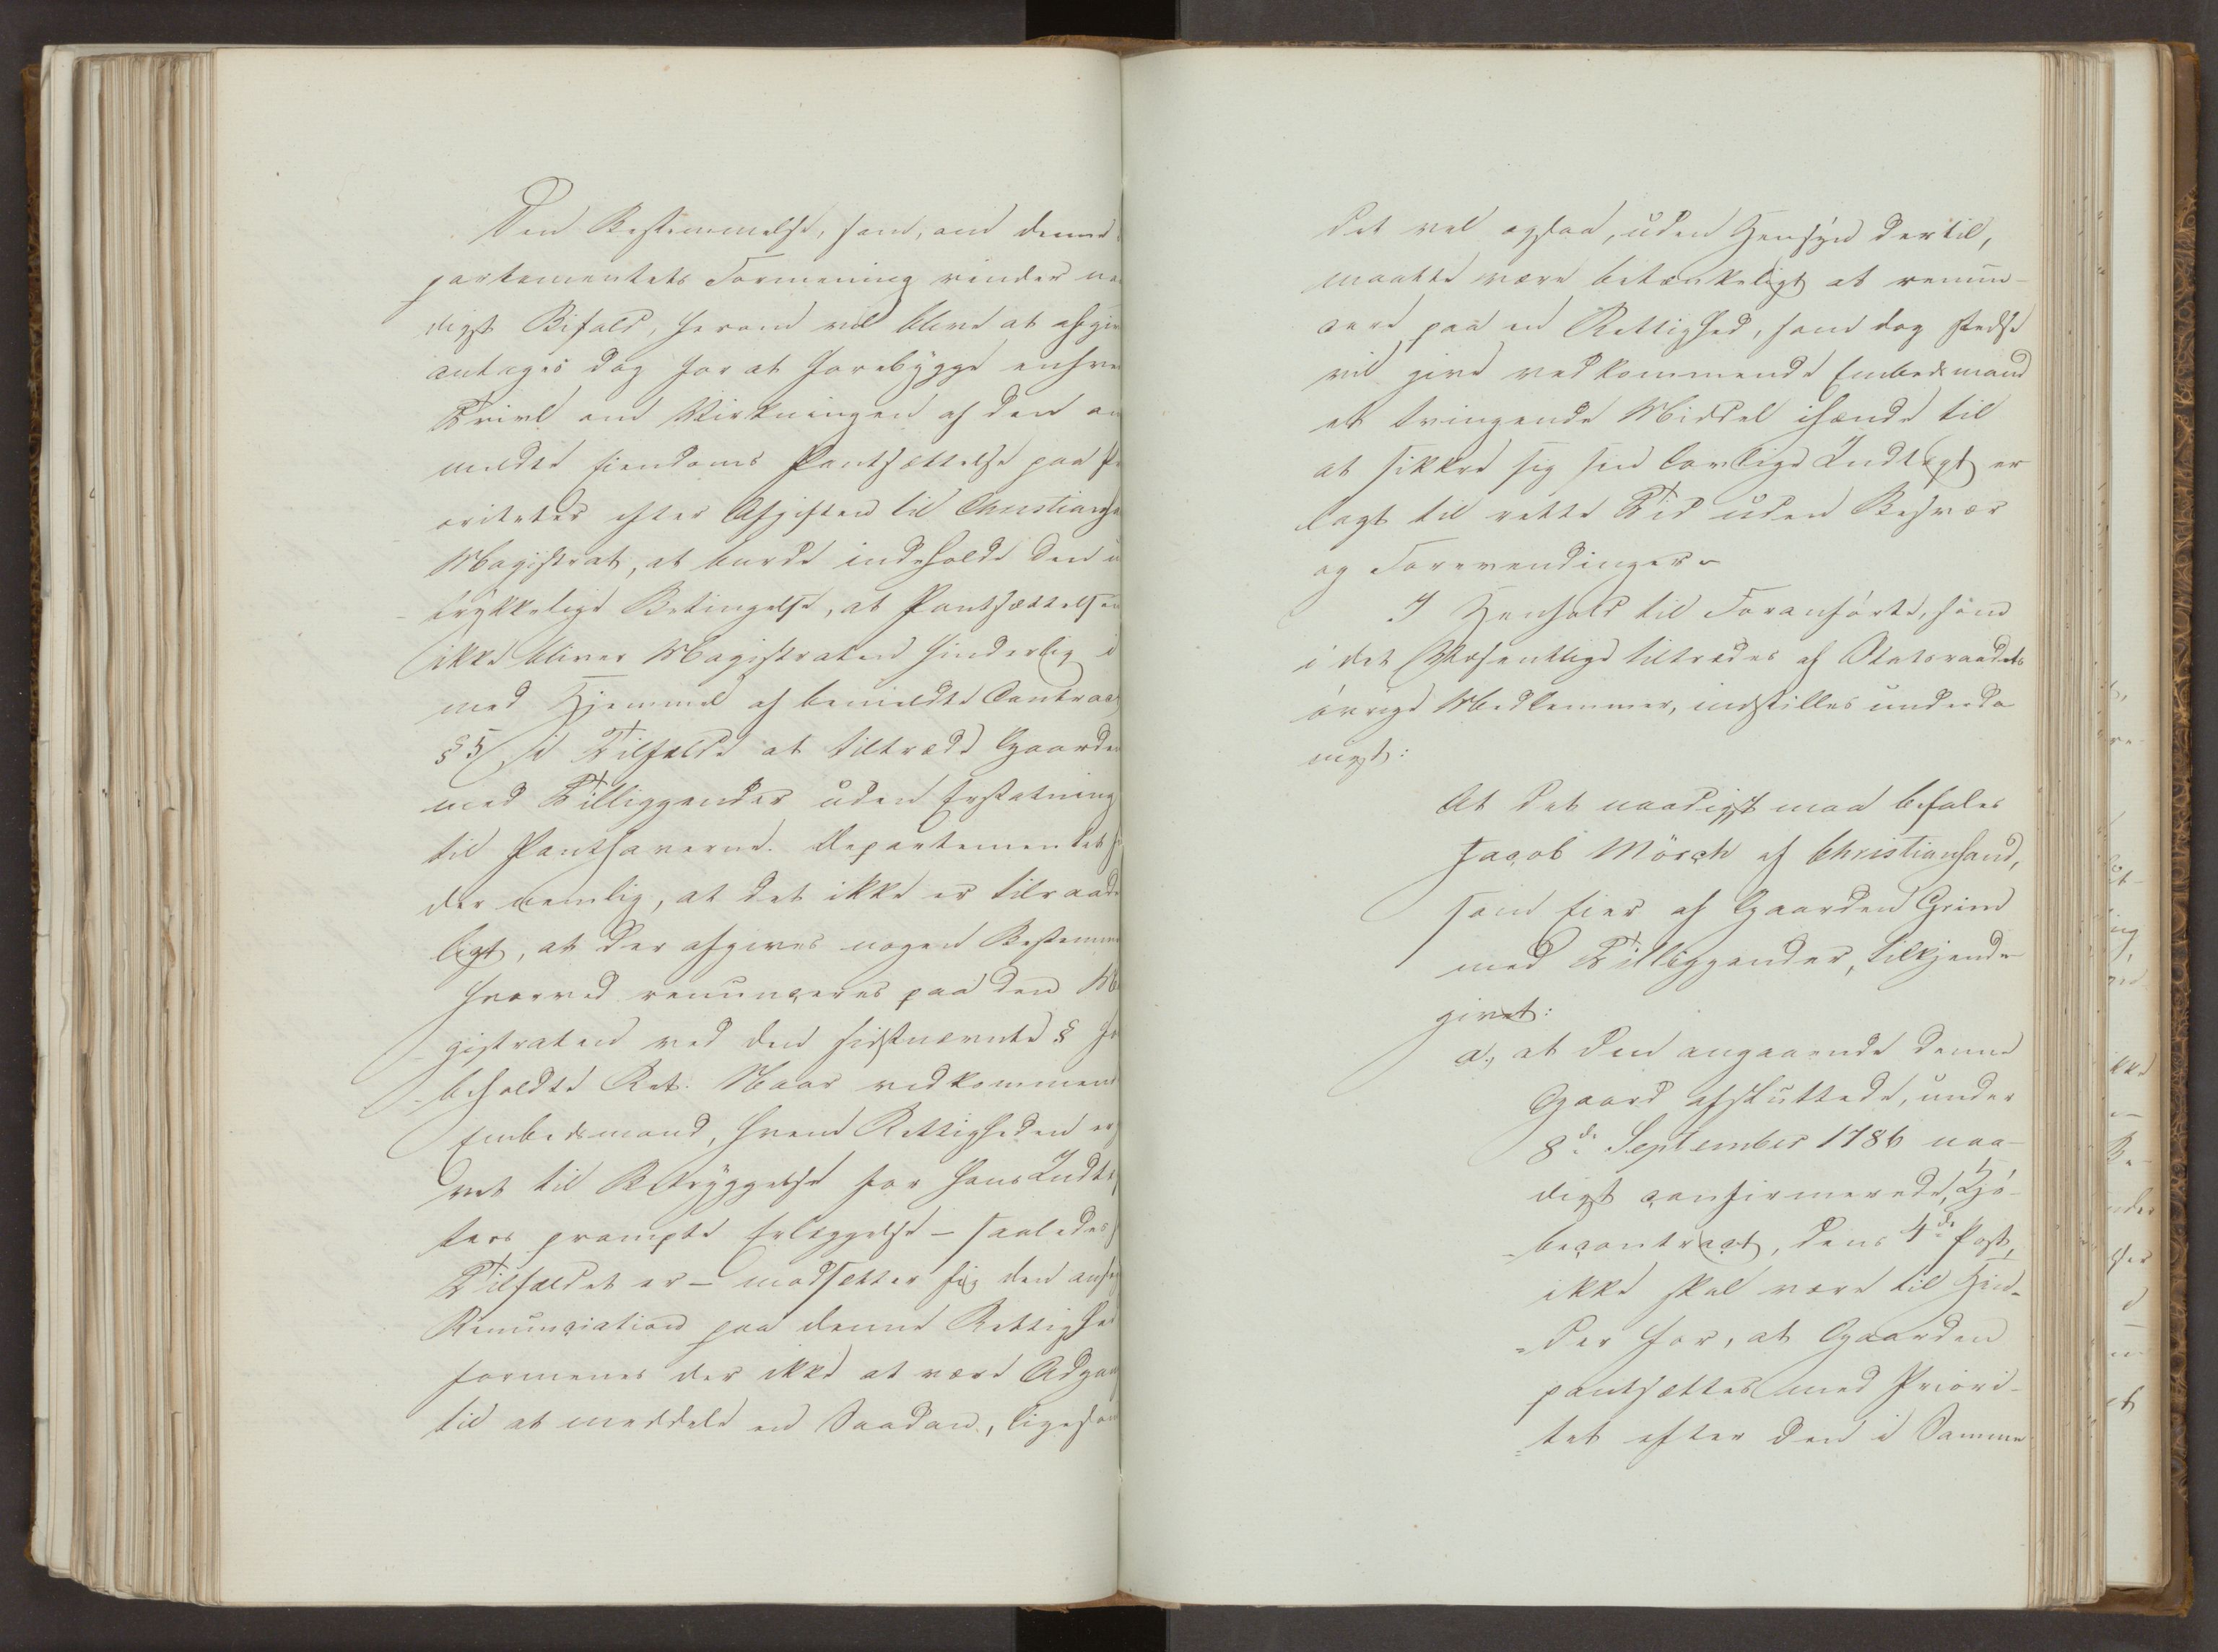 Den Bestemmelse, som, om denne
partementets Formening vinder na
digst Bifald, herom vil blive at afgiv
antages dog for at forebygge enhve
Tvivl om Virkningen af den an
meldte Eiendoms Pantsættelse paa Pr
oriteter efter Afgiften til Christiansa
Magistrat, at burde indeholde den u
trykkelige Betingelse, at Pantsættelsen
ikke bliver Magistraten hinderlig i
med Hjemmel af bemeldte Contrac
§ 5 i Tilfælde at tiltræde Gaarden
med Tilliggender uden Erstatning
til Panthaverne. Departementet
der nemlig, at det ikke er tilraade
ligt, at der afgives nogen Bestemme
hvorved renunceres paa den Ma
gistraten ved den sidstnævnte § for
beholdte Ret. Naar vedkommende
Embedsmand, hvem Rettigheden er
vet til Betryggelse for hans Indtæg
ters prompte Erlæggelse – saaledes
Tilfældet er – modsætter sig den ansø
Renunciation paa denne Rettighed
formenes der ikke at være Adgang
til at meddele en Saadan, ligesom
det vel ogsaa, uden Hensyn dertil,
maatte være betænkeligt at renun-
cere paa en Rettighed, som dog stedse
vil give vedkommende Embedsmand
et tvingende Middel ihænde til
at sikkre sig sin lovlige Indtægt er
lagt til rette Tid uden Besvær
og Forevendinger.
I Henhold til Foranførte, som
i det Væsentlige tiltrædes af Statsraadets
øvrige Medlemmer, indstilles underda
nigst:
At det naadigst maa befales
Jacob Mörch af Christiansand,
som Eier af Gaarden Grim
med Tilliggender, tilkjende-
givet:
a., at den angaaende denne
Gaard afsluttede, under
8de September 1786 naa-
digst confirmerede, Kjö-
becontract, dens 4de Post,
ikke skal være til Hin-
der for, at Gaarden
pantsættes med Priori-
tet efter den i Samme